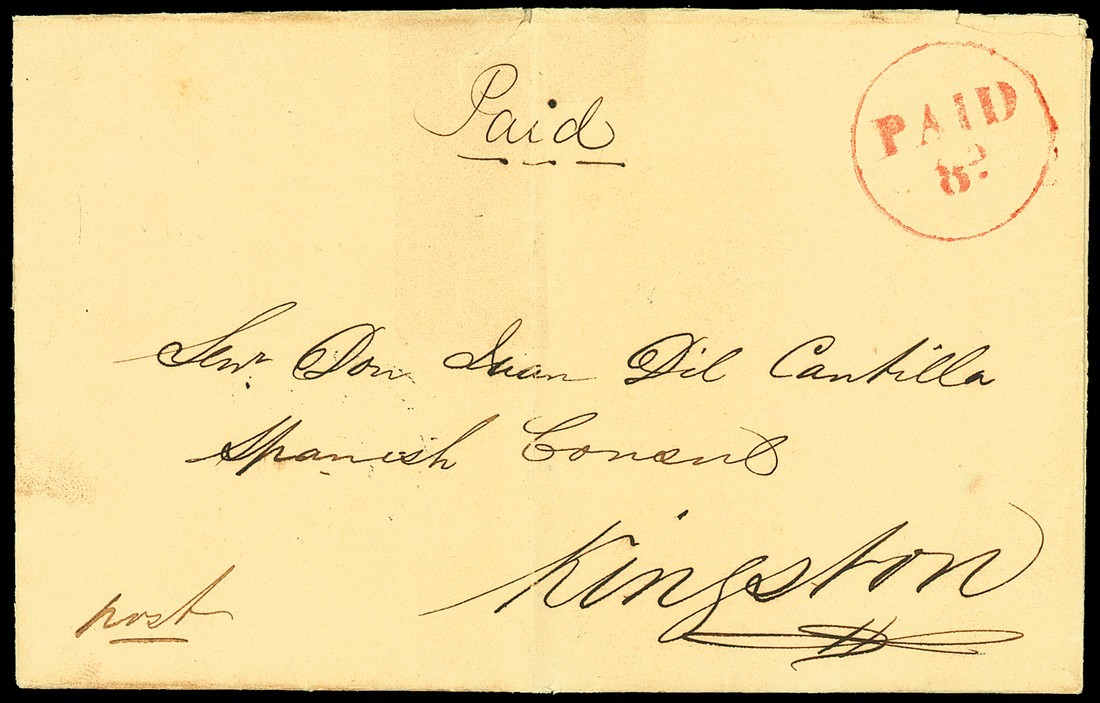 Paid
PAID
8D
Senr Don Juan Dil Cantilla
Spanish Consul
Kingston
post